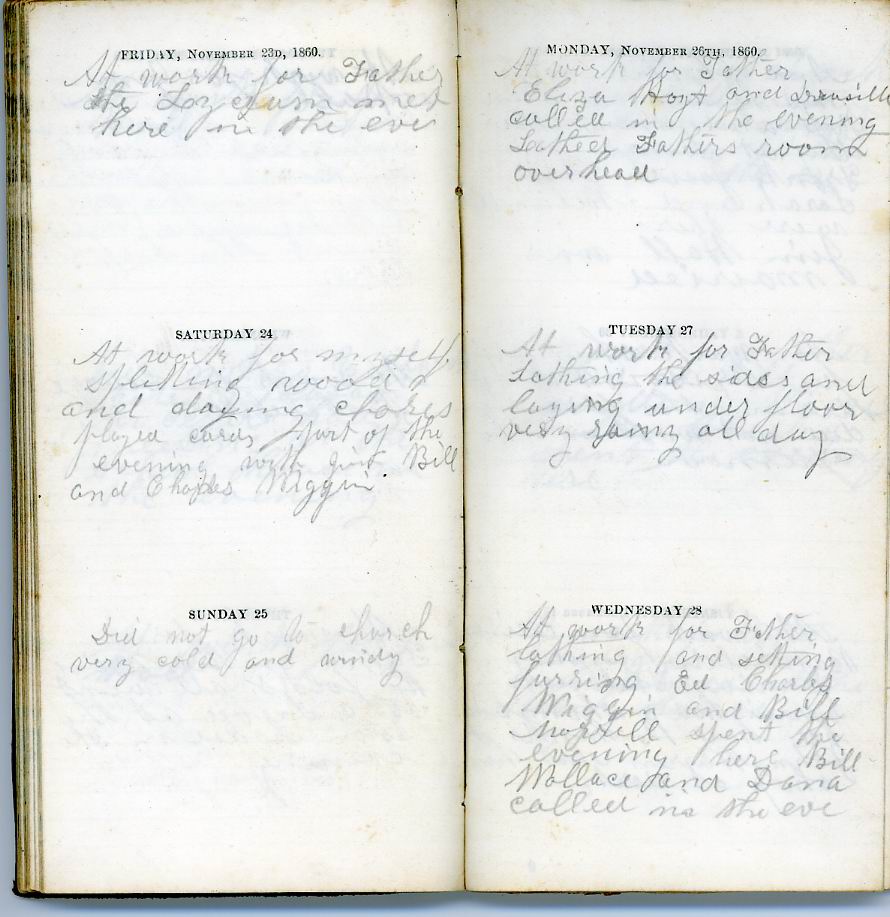 FRIDAY, NOVEMBER 23D, 1860.
At work for Father
the Lyceum met
here in the eve
SATURDAY 24
At work for myself
splitting wood
and doying chores
played cards part of the
evening with Jim Bill
and Charles Wiggin
SUNDAY 25
Did not go to church
very cold and windy
MONDAY, NOVEMBER 26TH, 1860.
At work for Father
Eliza Hoyt and Drusilla
called in the evening
Lathed Fathers room
overhead
TUESDAY 27
At work for Father
Lathing the sides and
laying under floor
very rainy all day
WEDNESDAY 28
At work for Father
lathing and setting
furring Ed Charles
Wiggin and Bill
Morrill spent the
evening here Bill
Wallace and Dana
called in the eve